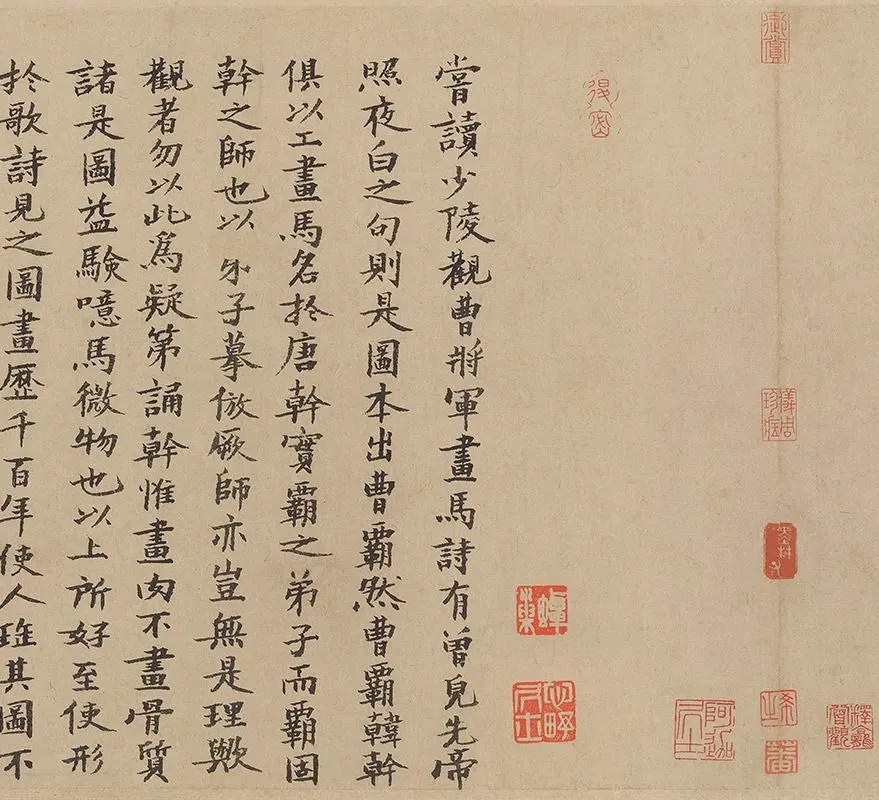 御賞
儀周珍藏
嘗讀少陵觀曹將軍畫馬詩有曾皃先帝
照夜白之句則是圖本出曹霸然曹霸韓幹
俱以工畫馬名扵唐幹實霸之弟子而霸固
幹之師也以弟子摹倣厥師亦豈無是理歟
觀者勿以此為疑第誦幹惟畫肉不畫骨質
諸是圖益驗噫馬微物也以上所好至使形
扵歌詩見之圖畫歷千百年使人珤其圖不